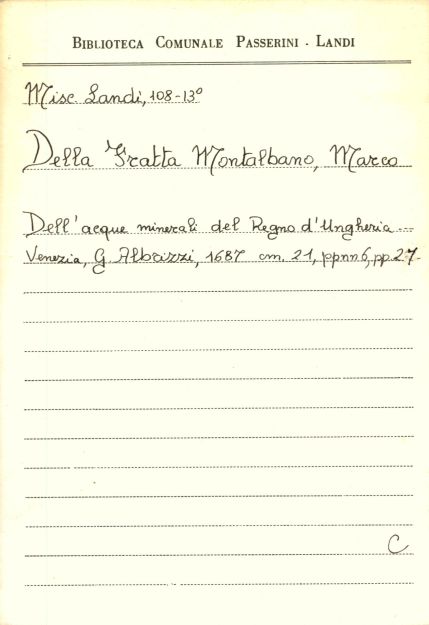 BIBLIOTECA COMUNALE PASSERINI - LANDI
Misc. Landi, 108-13º
Della Fratta Montalbano, Marco
Dell'acque minerali del Regno d'Ungheria ...
Venezia, G. Albrizzi, 1687 cm. 21, ppnn6, pp.27.
C